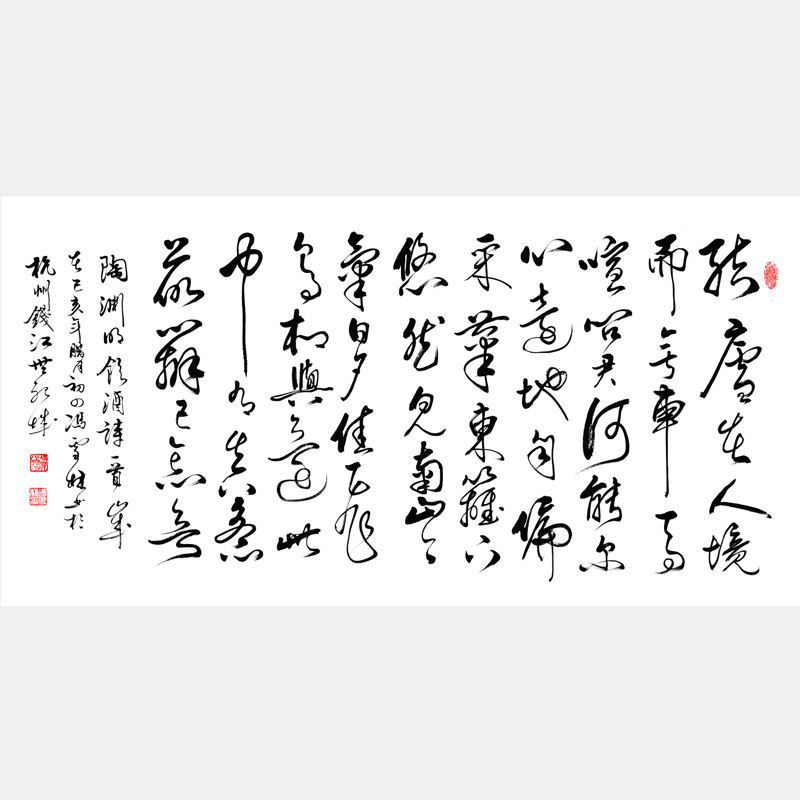 結廬在人境
而無車馬
喧問君何能爾
心遠地自偏
采菊東籬下
悠然見南山々
氣日夕佳飛
鳥相與還此
中有真意
欲辨已忘言
陶淵明飲酒詩一首歲
在己亥年臘月初四馮雪林書於
杭州錢江世紀城